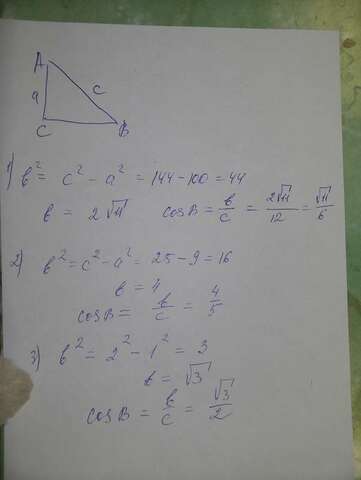 A
a c
C B
1) b² = c² - a² = 144 - 100 = 44
b = 2√11 cosB = b/c = 2√11/12 = √11/6
2) b² = c² - a² = 25 - 9 = 16
b = 4
cosB = b/c = 4/5
3) b² = 2² - 1² = 3
b = √3
cosB = b/c = √3/2